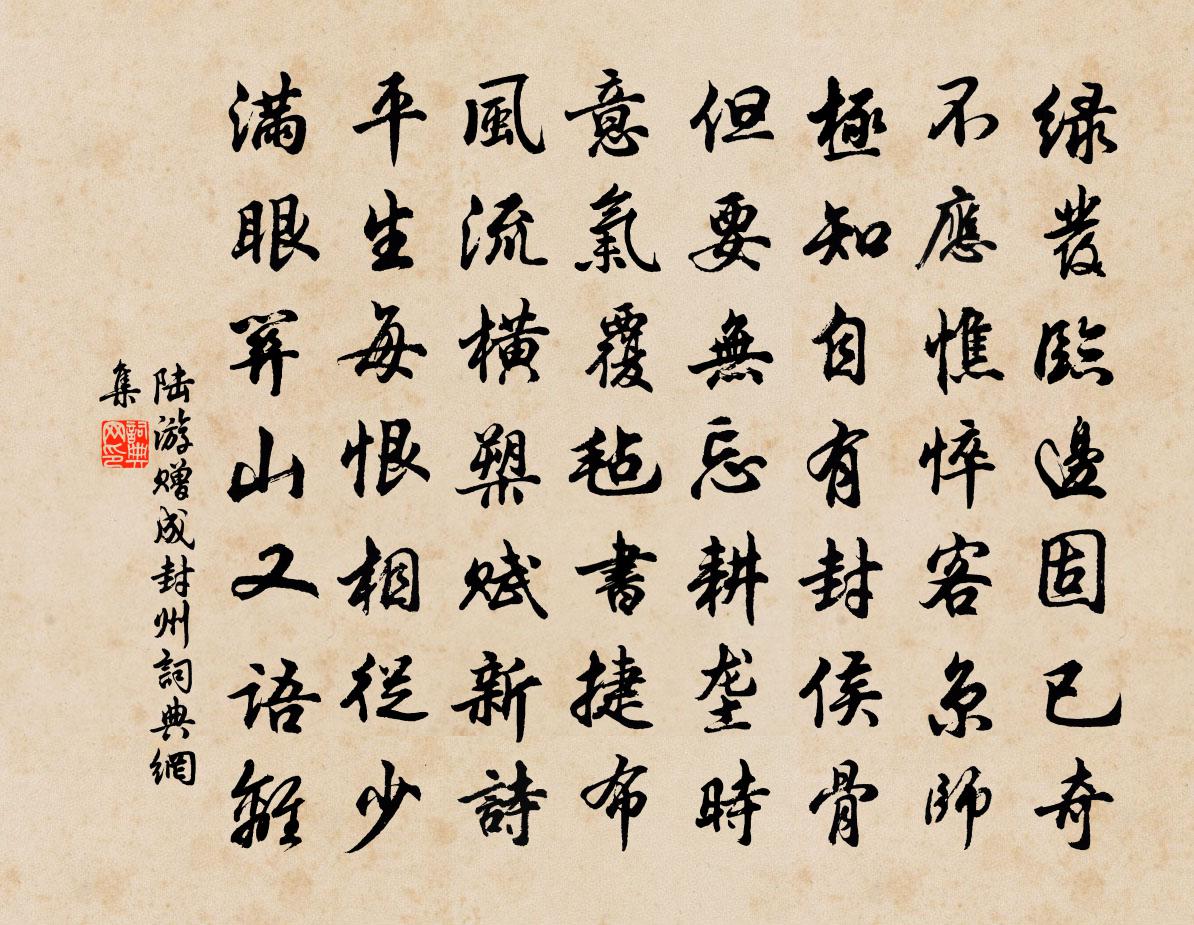 緑發臨邊固已奇
不應憔悴客京師
極知自有封侯骨
但要無忘耕垄時
意氣覆毡書捷布
風流橫槊賦新詩
平生每恨相從少
滿眼關山又語離
陆游赠成封州詞典網
集
詞典
网印